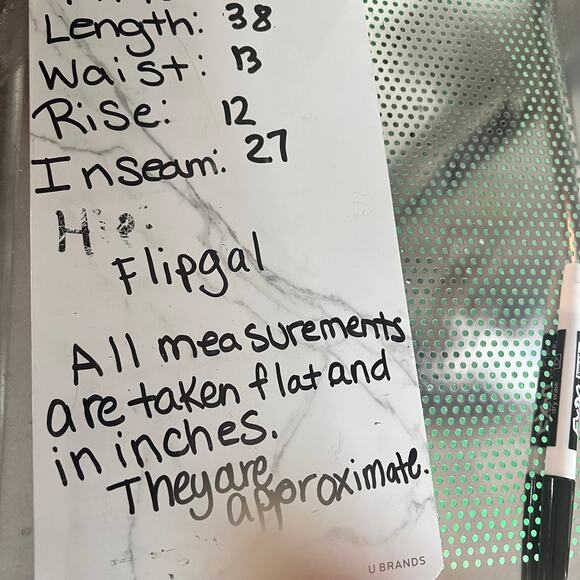 Length: 38
Waist: 13
Rise: 12
Inseam: 27
Hip:
Flipgal
All measurements
are taken flat and
in inches.
They are
approximate.
U BRANDS
dry erase
EXPO